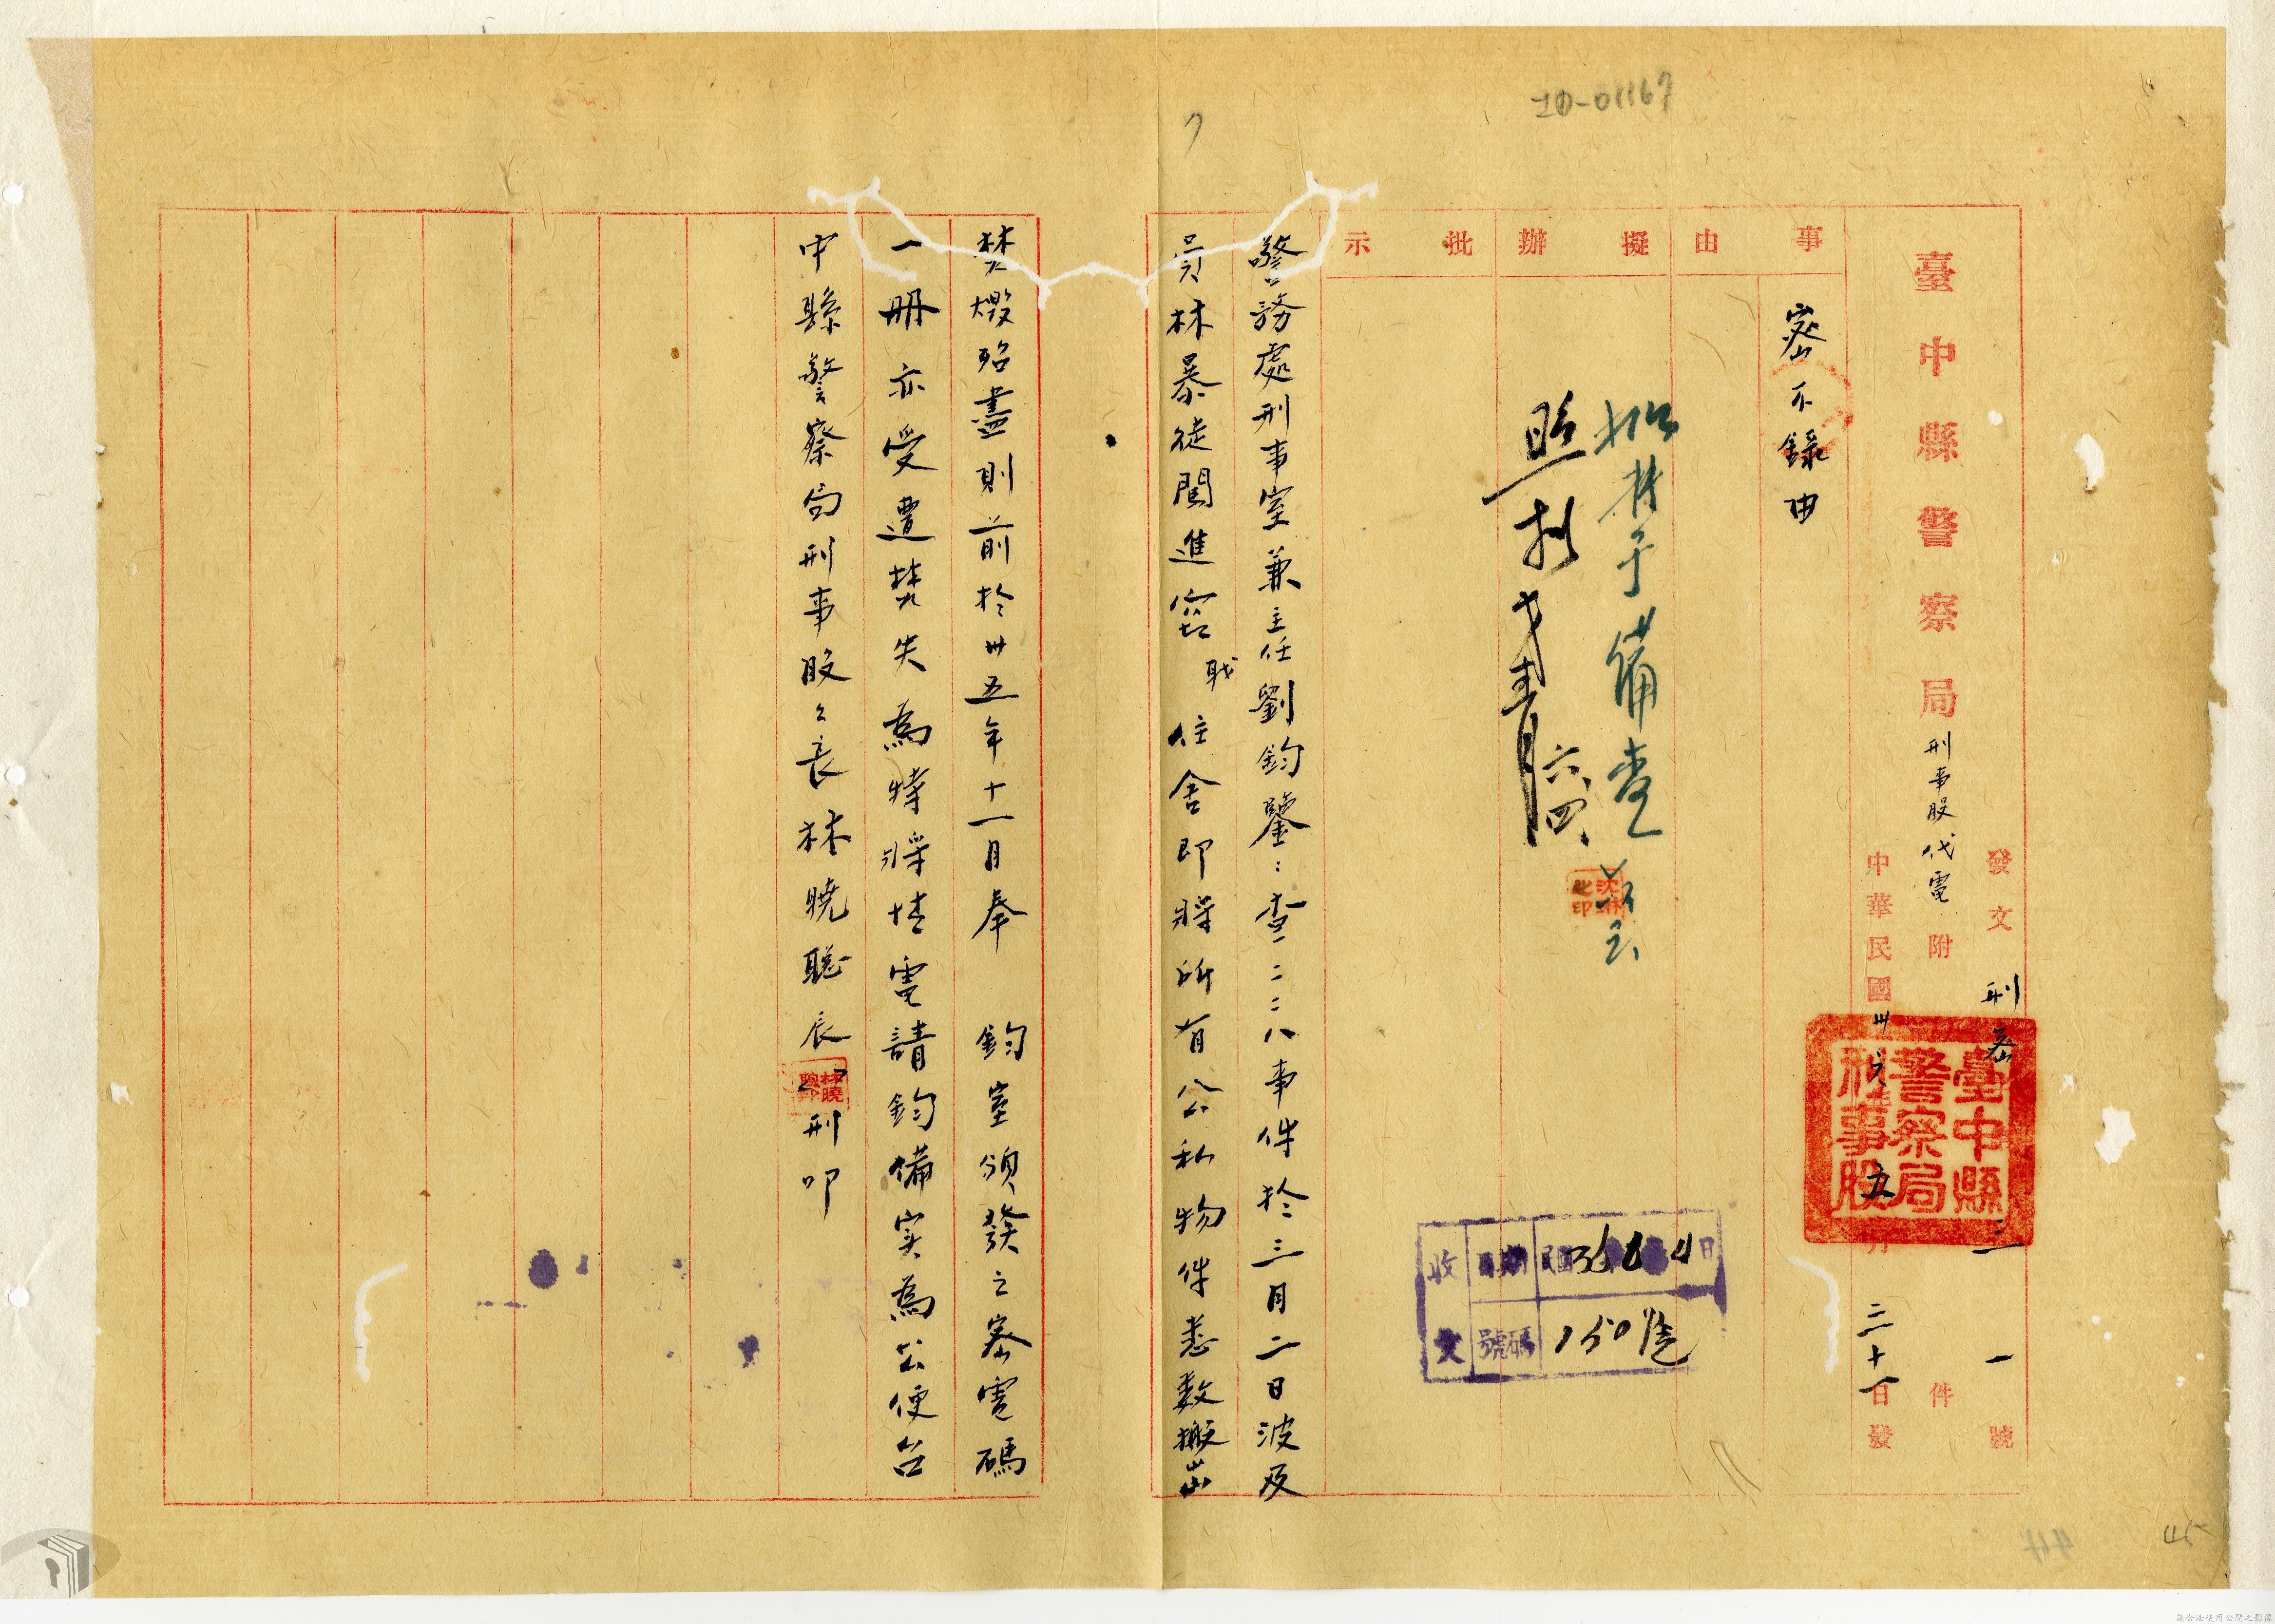 臺中縣警察局刑事股代電
發文 刑密 一 號
附 件
中華民國卅六年五月三十一日發
臺中縣
警察局
刑事股
事由
密不錄由
擬辦
擬存予備查
沈
之印
批示
照擬
六、四、
收文
日期 民國36 6 4日
號碼 150號
警務處刑事室兼主任劉鈞鑒：查二二八事件於三月二日波及
員林暴徒闖進 職 住舍即將所有公私物件悉數搬出
焚燬殆盡則前於卅五年十一月奉 鈞室頒發之密電碼
一冊亦受遭焚失為特將情電請鈞備案為公便台
中縣警察局刑事股々長林曉聰辰 刑叩
林曉聰印
ID-01167
7
45
44
請合法使用公開之影像